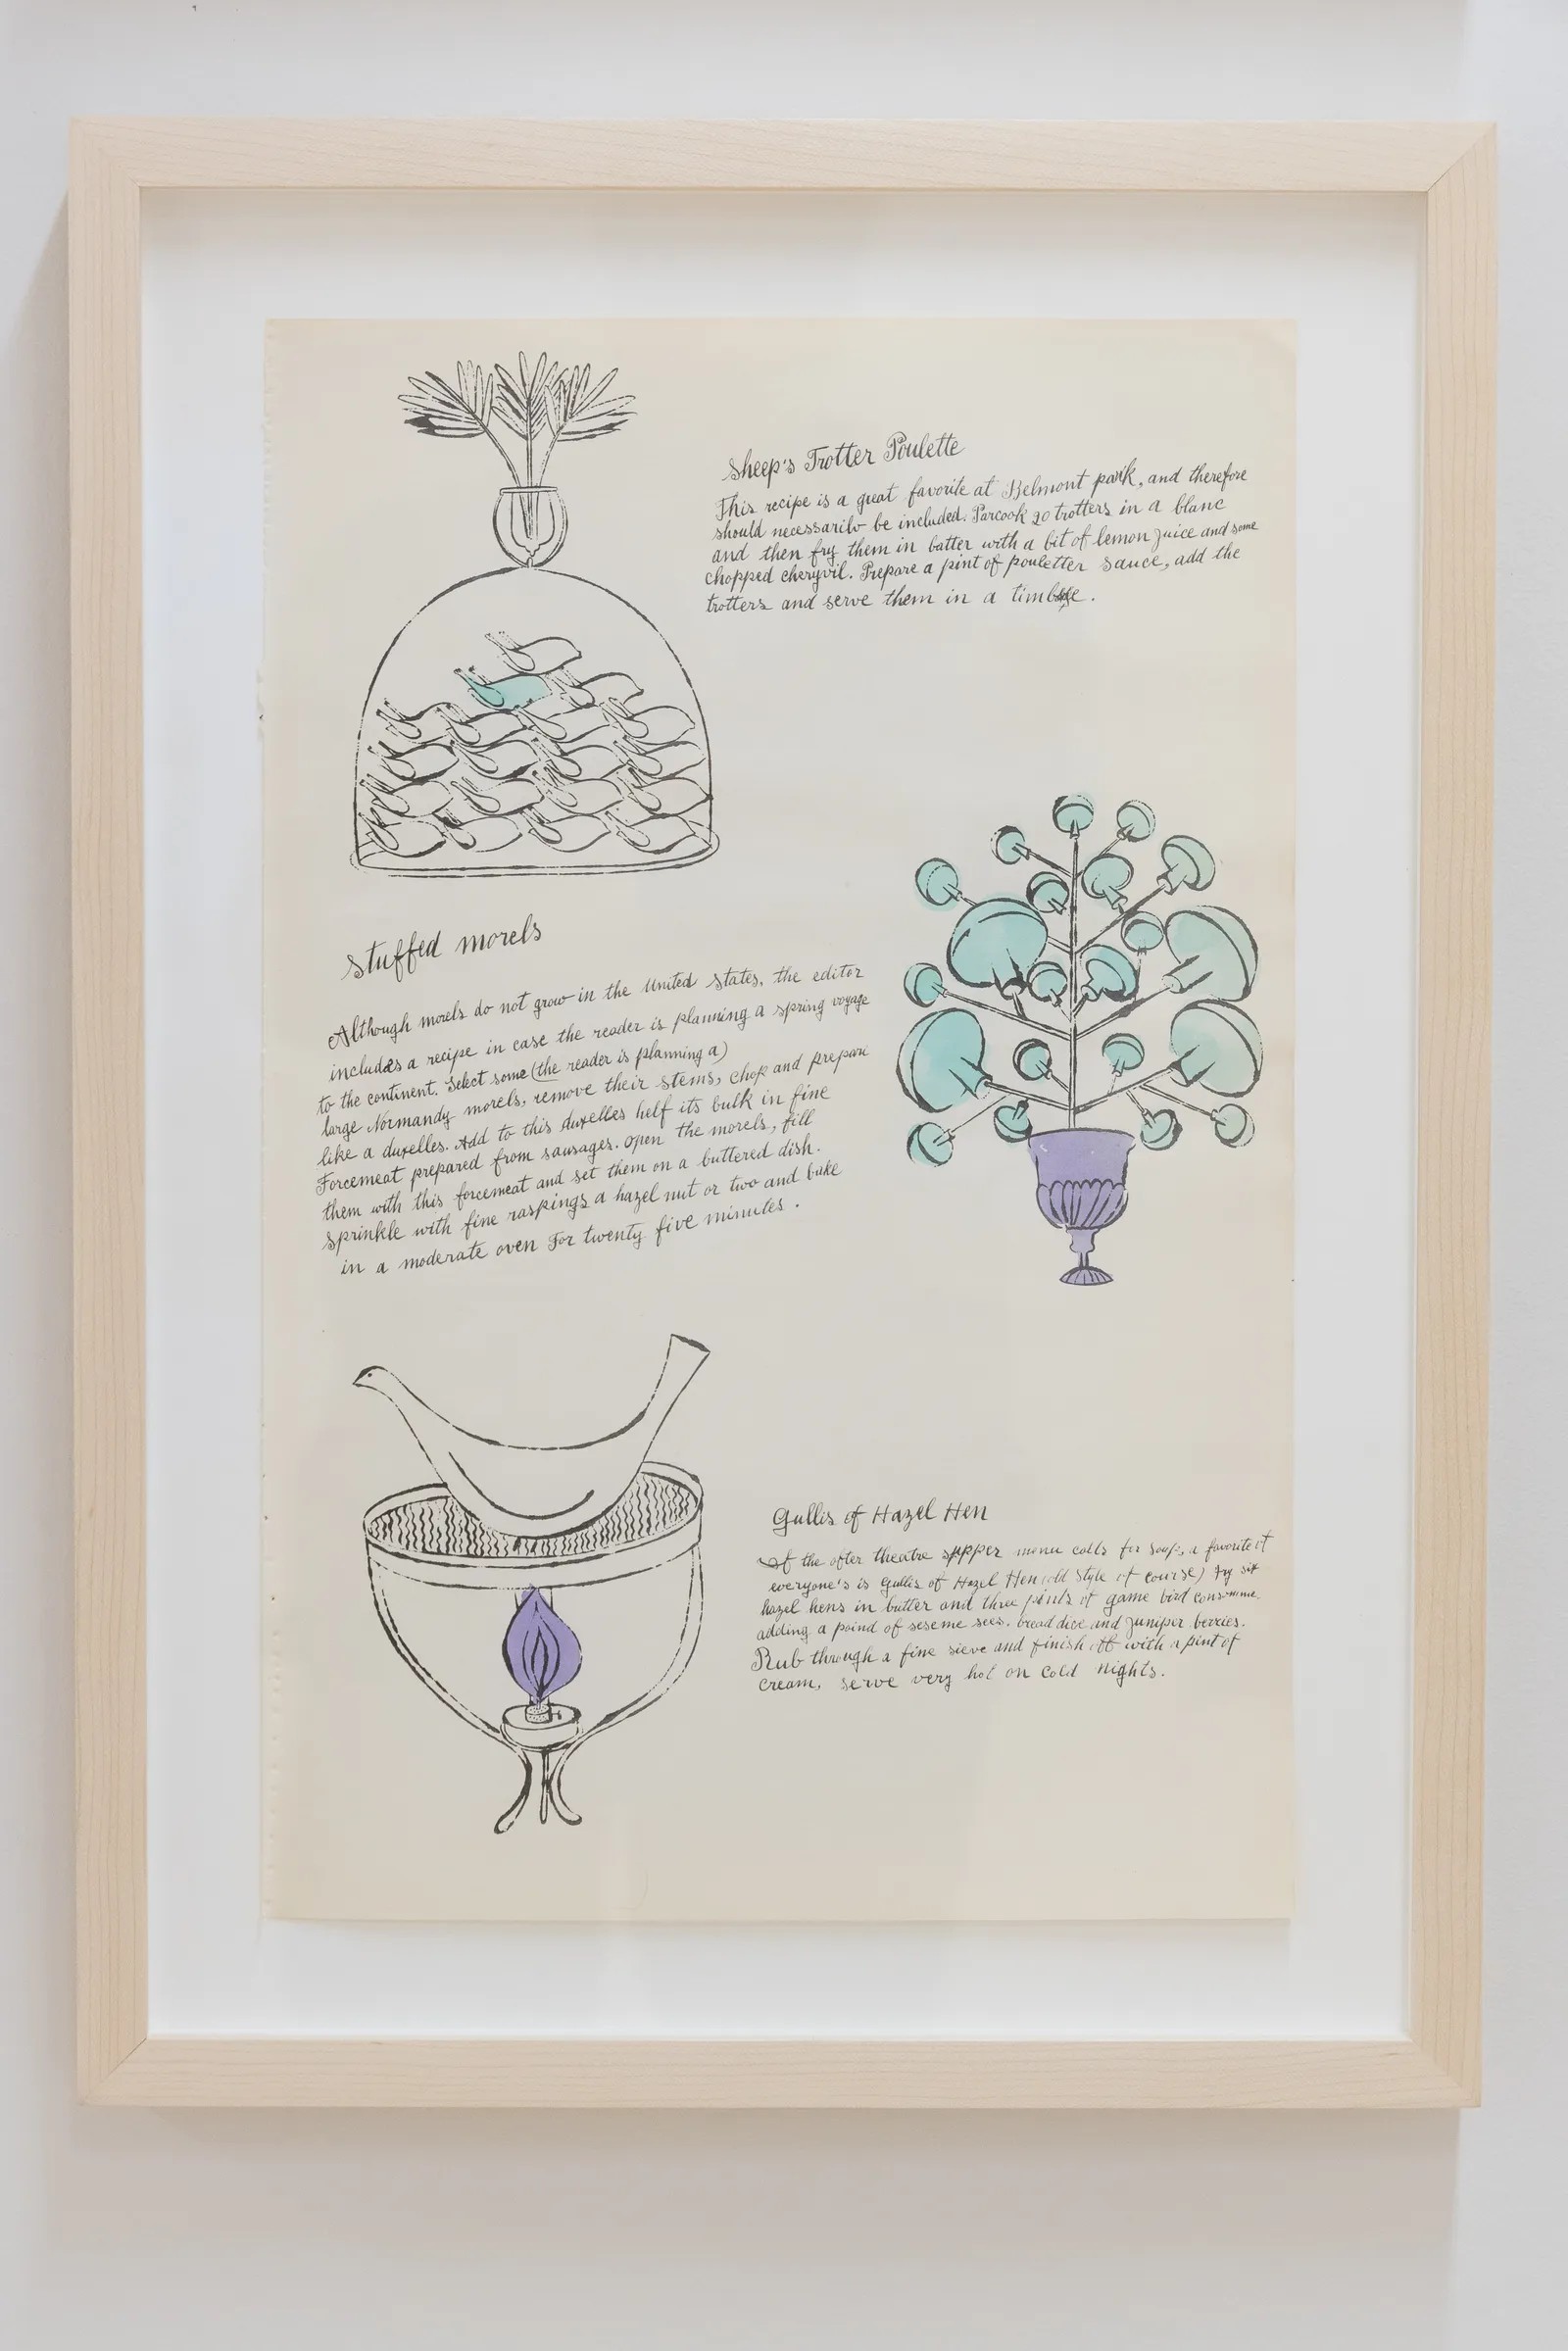 Sheep's Trotter Poulette
This recipe is a great favorite at Belmont park, and therefore
should necessarilv be included. Parcook 20 trotters in a blanc
and then fry them in batter with a bit of lemon juice and some
chopped chervil. Prepare a pint of pouletter sauce, add the
trotters and serve them in a
Stuffed morels
Although morels do not grow in the United States, the editor
includes a recipe in case the reader is planning a spring voyage
to the continent. Select some (the reader is planning a)
large Normandy morels, remove their stems, chop and prepare
like a duxelles. Add to this duxelles helf its bulk in fine
Forcemeat prepared from sausages. Open the morels, fill
them with this forcemeat and set them on a buttered dish.
Sprinkle with fine raspings a hazel nut or two and bake
in a moderate oven For twenty five minutes.
Gullis of Hazel Hen
If the after theatre supper menu calls for soup, a favorite of
everyone's is Gullis of Hazel Hen (old Style of course) Fry six
hazel hens in butter and three pints of game bird consomme,
adding a poind of seseme sees, bread dice and juniper berries.
Rub through a fine sieve and finish off with a pint of
cream, serve very hot on cold nights.